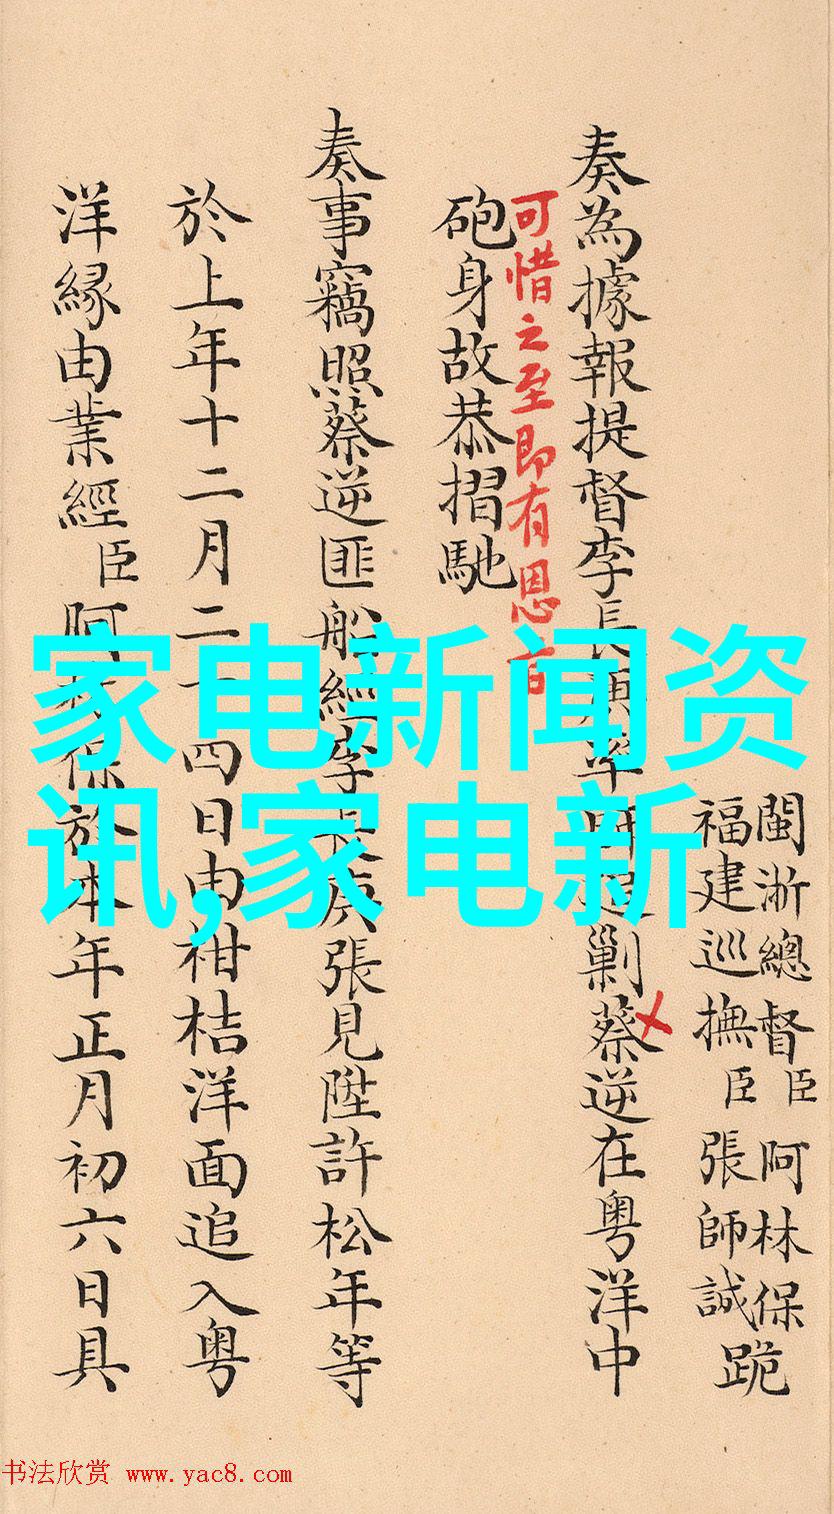 閩浙總督臣阿林保
福建巡撫臣張師誠
跪
奏為據報提督李長庚率師追剿蔡逆在粵洋中
可惜之至即有恩旨
砲身故恭摺馳
奏事竊照蔡逆匪船經李長庚張見陞許松年等
於上年十二月二十四日由柑桔洋面追入粵
洋緣由業經臣阿林保於本年正月初六日具
家电新闻资
讯,家电新
书法欣赏 www.yac8.com